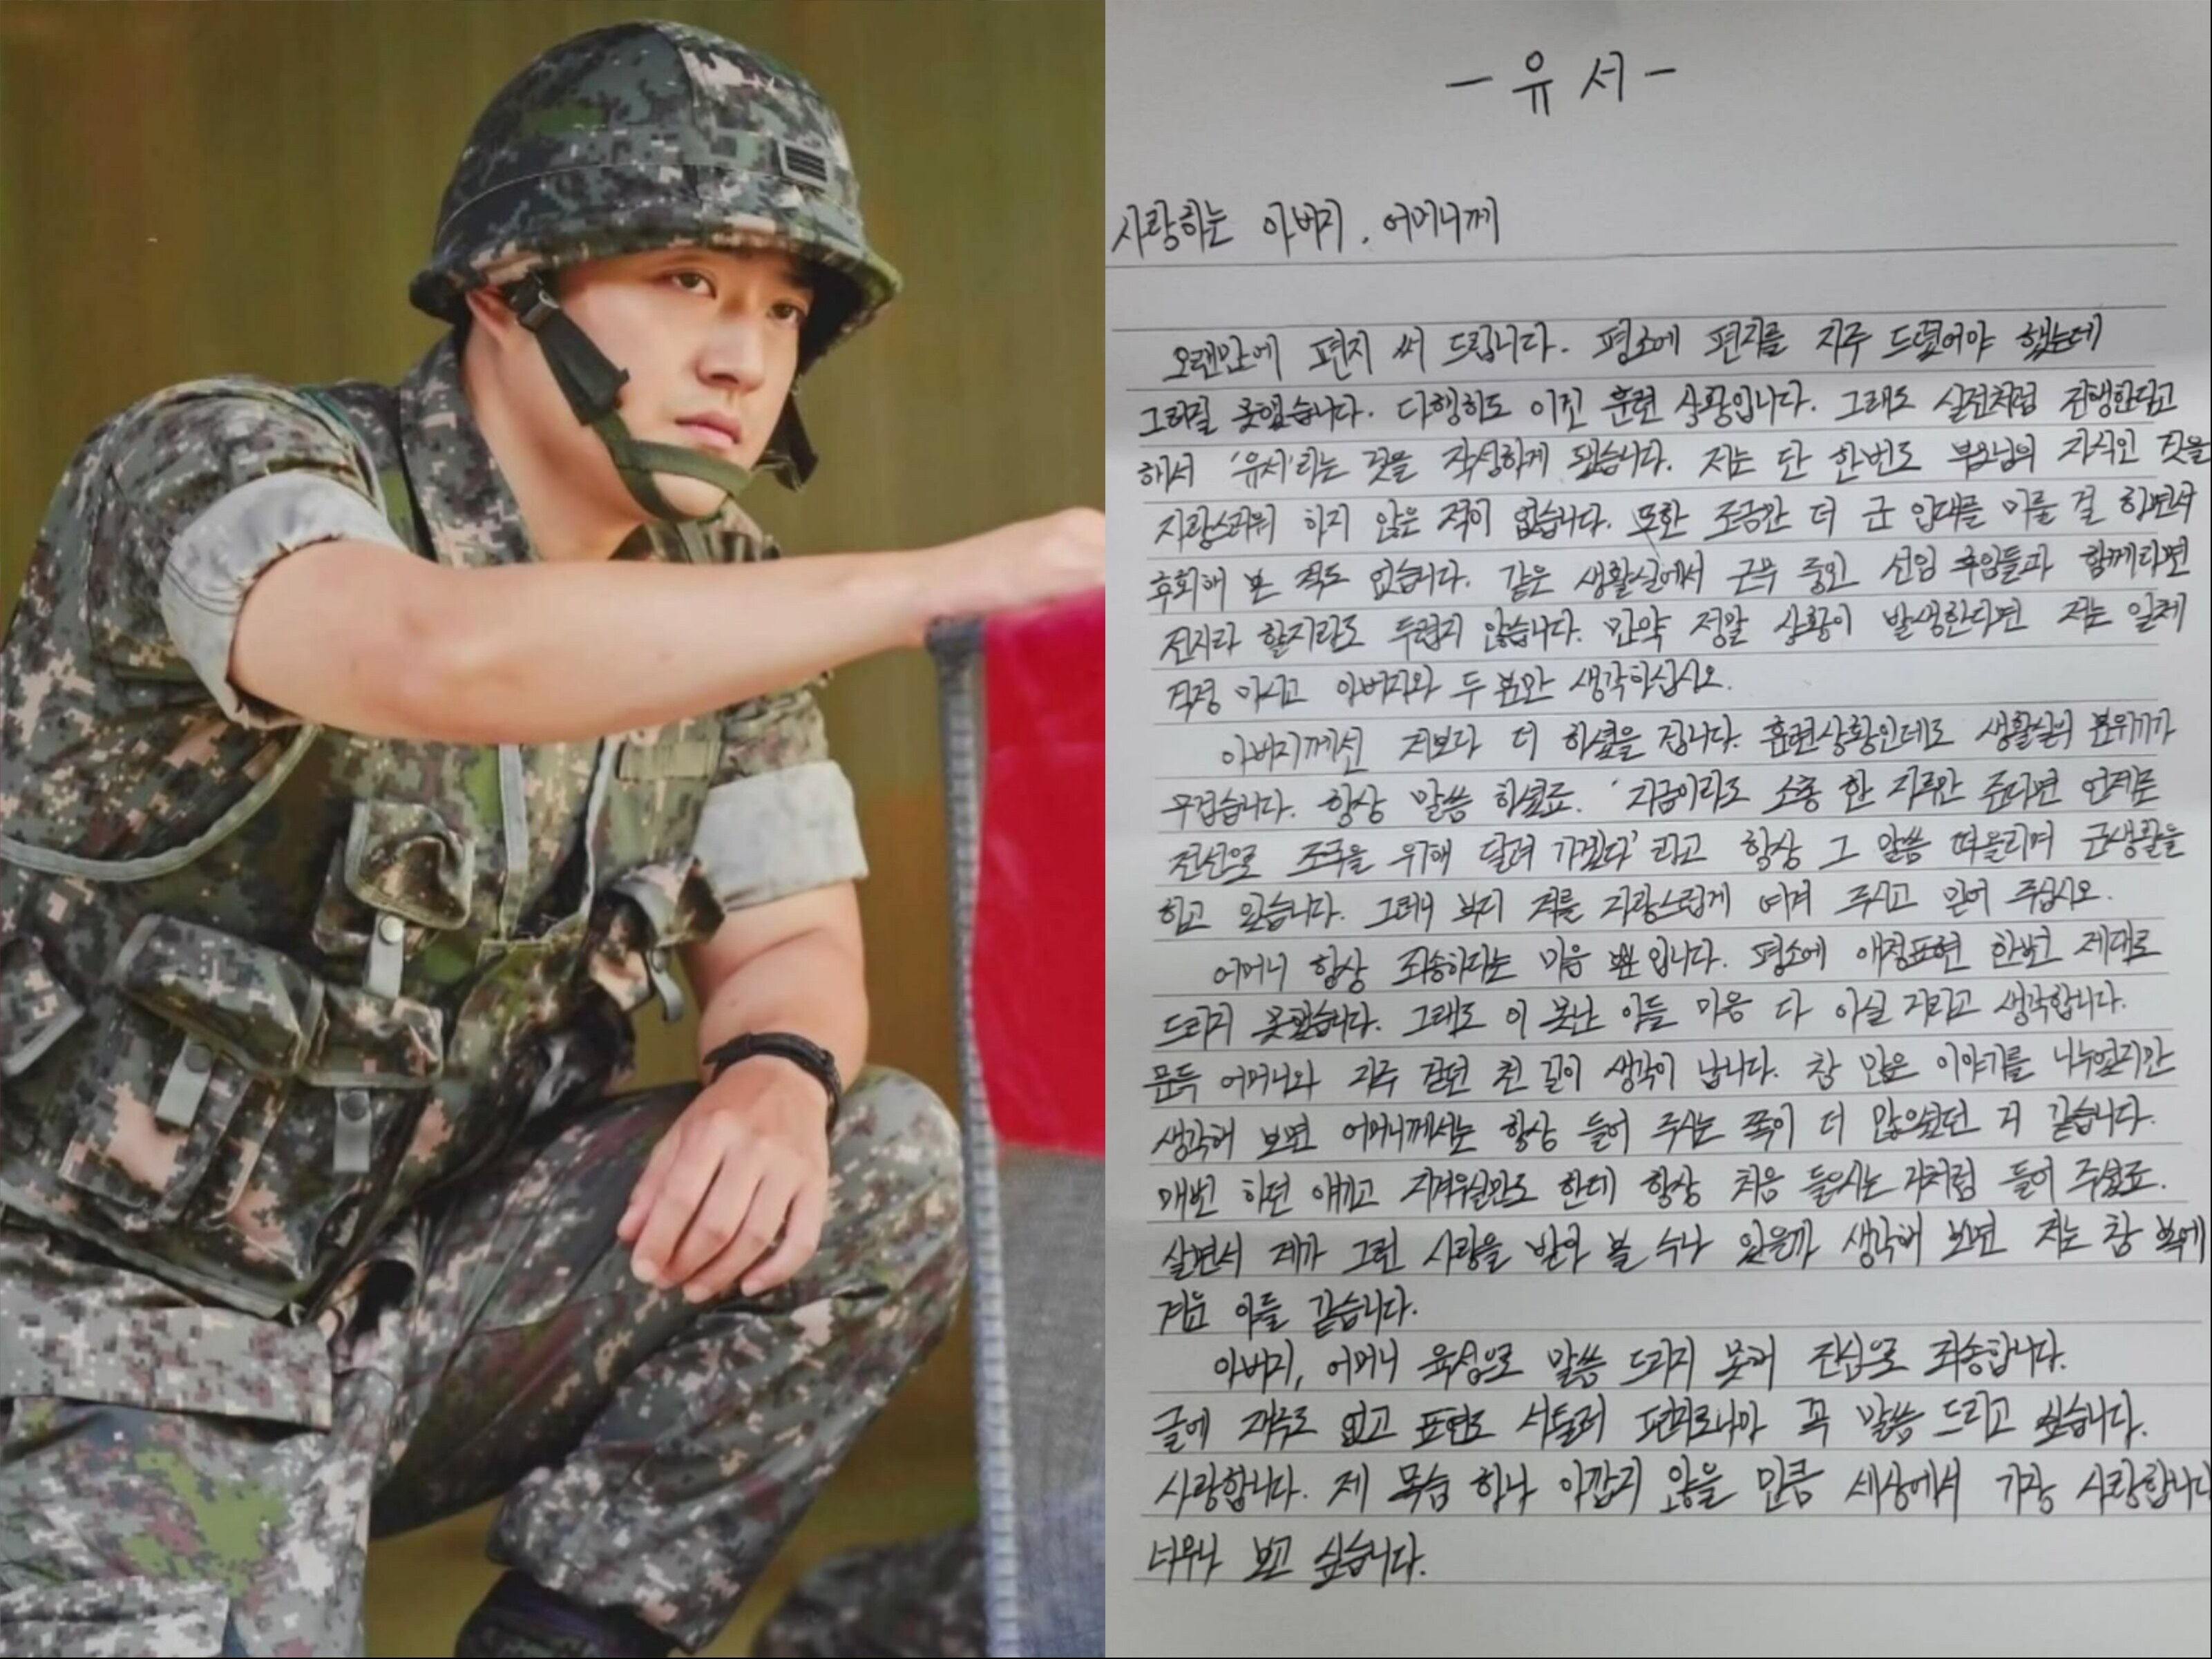 - 유 서 -
사랑하는 아버지, 어머니께
오랜만에 편지 써 드립니다. 평소에 편지를 자주 드렸어야 했는데
그러질 못했습니다. 다행히도 이건 훈련 상황입니다. 그래도 실전처럼 진행한다고
해서 '유서'라는 것을 작성하게 됐습니다. 저는 단 한번도 부모님의 자식인 것을
자랑스러워 하지 않은 적이 없습니다. 또한 조금만 더 군 입대를 미룰 걸 하면서
후회해 본 적도 없습니다. 같은 생활실에서 근무 중인 선임 후임들과 함께라면
전사라 할지라도 두렵지 않습니다. 만약 정말 상황이 발생한다면 저는 일체
걱정 마시고 아버지와 두 분만 생각하십시오.
아버지께선 저보다 더 하셨을 겁니다. 훈련상황인데도 생활실의 분위기가
무겁습니다. 항상 말씀 하셨죠. '지금이라도 소총 한 자루만 준다면 언제든
전선으로 조국을 위해 달려 가겠다' 라고 항상 그 말씀 떠올리며 군생활을
하고 있습니다. 그러니 부디 저를 자랑스럽게 여겨 주시고 믿어 주십시오.
어머니 항상 죄송하다는 마음 뿐 입니다. 평소에 애정표현 한번 제대로
드리지 못했습니다. 그래도 이 못난 아들 마음 다 아실 거라고 생각합니다.
문득 어머니와 자주 걷던 천 길이 생각이 납니다. 참 많은 이야기를 나누었지만
생각해 보면 어머니께서는 항상 들어 주시는 쪽이 더 많으셨던 거 같습니다.
매번 하던 얘기고 지겨우실만도 한데 항상 처음 들으시는 거처럼 들어 주셨죠.
살면서 제가 그런 사랑을 받아 볼 수나 있을까 생각해 보면 저는 참 복에
겨운 아들 같습니다.
아버지, 어머니 육성으로 말씀 드리지 못해 진심으로 죄송합니다.
글에 재주도 없고 표현도 서툴러 편지로나마 꼭 말씀 드리고 싶습니다.
사랑합니다. 제 목숨 하나 아깝지 않을 만큼 세상에서 가장 사랑합니다
너무나 보고 싶습니다.